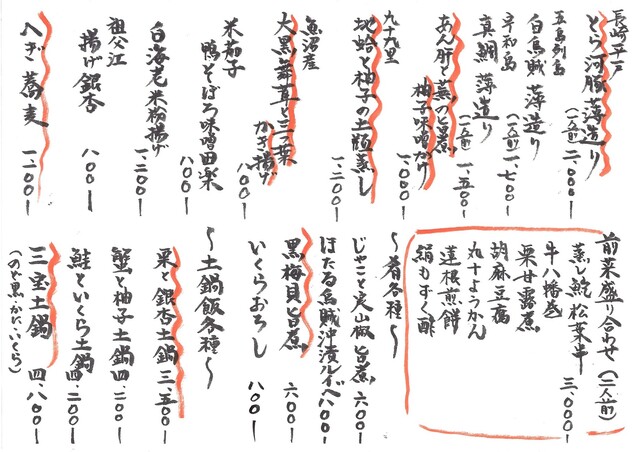 長崎平戸
とら河豚 薄造り (一人前) 二、〇〇〇ー
五島列島
白烏賊 薄造り (一人前) 一、七〇〇ー
平和島
真鯛 薄造り (一人前) 一、五〇〇ー
あん肝と蕪の旨煮
柚子味噌かけ 一、〇〇〇ー
九十九里
地蛤と柚子の土瓶蒸し 一、二〇〇ー
魚沼産
大黒舞茸と三つ葉
かき揚げ 八〇〇ー
米茄子
鴨そぼろ味噌田楽 八〇〇ー
白海老米粉揚げ 一、二〇〇ー
祖父江
揚げ銀杏 八〇〇ー
へぎ蕎麦 一、二〇〇ー
前菜盛り合わせ (二人前) 三、〇〇〇ー
蒸し鮑 松葉串
牛八幡巻
栗甘露煮
胡麻豆腐
丸十ようかん
蓮根煎餅
絹もずく酢
〜肴各種〜
じゃこと実山椒旨煮 六〇〇ー
ほたる烏賊沖漬ルイベ 八〇〇ー
黒梅貝旨煮 六〇〇ー
いくらおろし 八〇〇ー
〜土鍋飯各種〜
栗と銀杏土鍋 三、五〇〇ー
蟹と柚子土鍋 四、二〇〇ー
鮭といくら土鍋 四、二〇〇ー
三宝土鍋 四、八〇〇ー
(のど黒・かに・いくら)